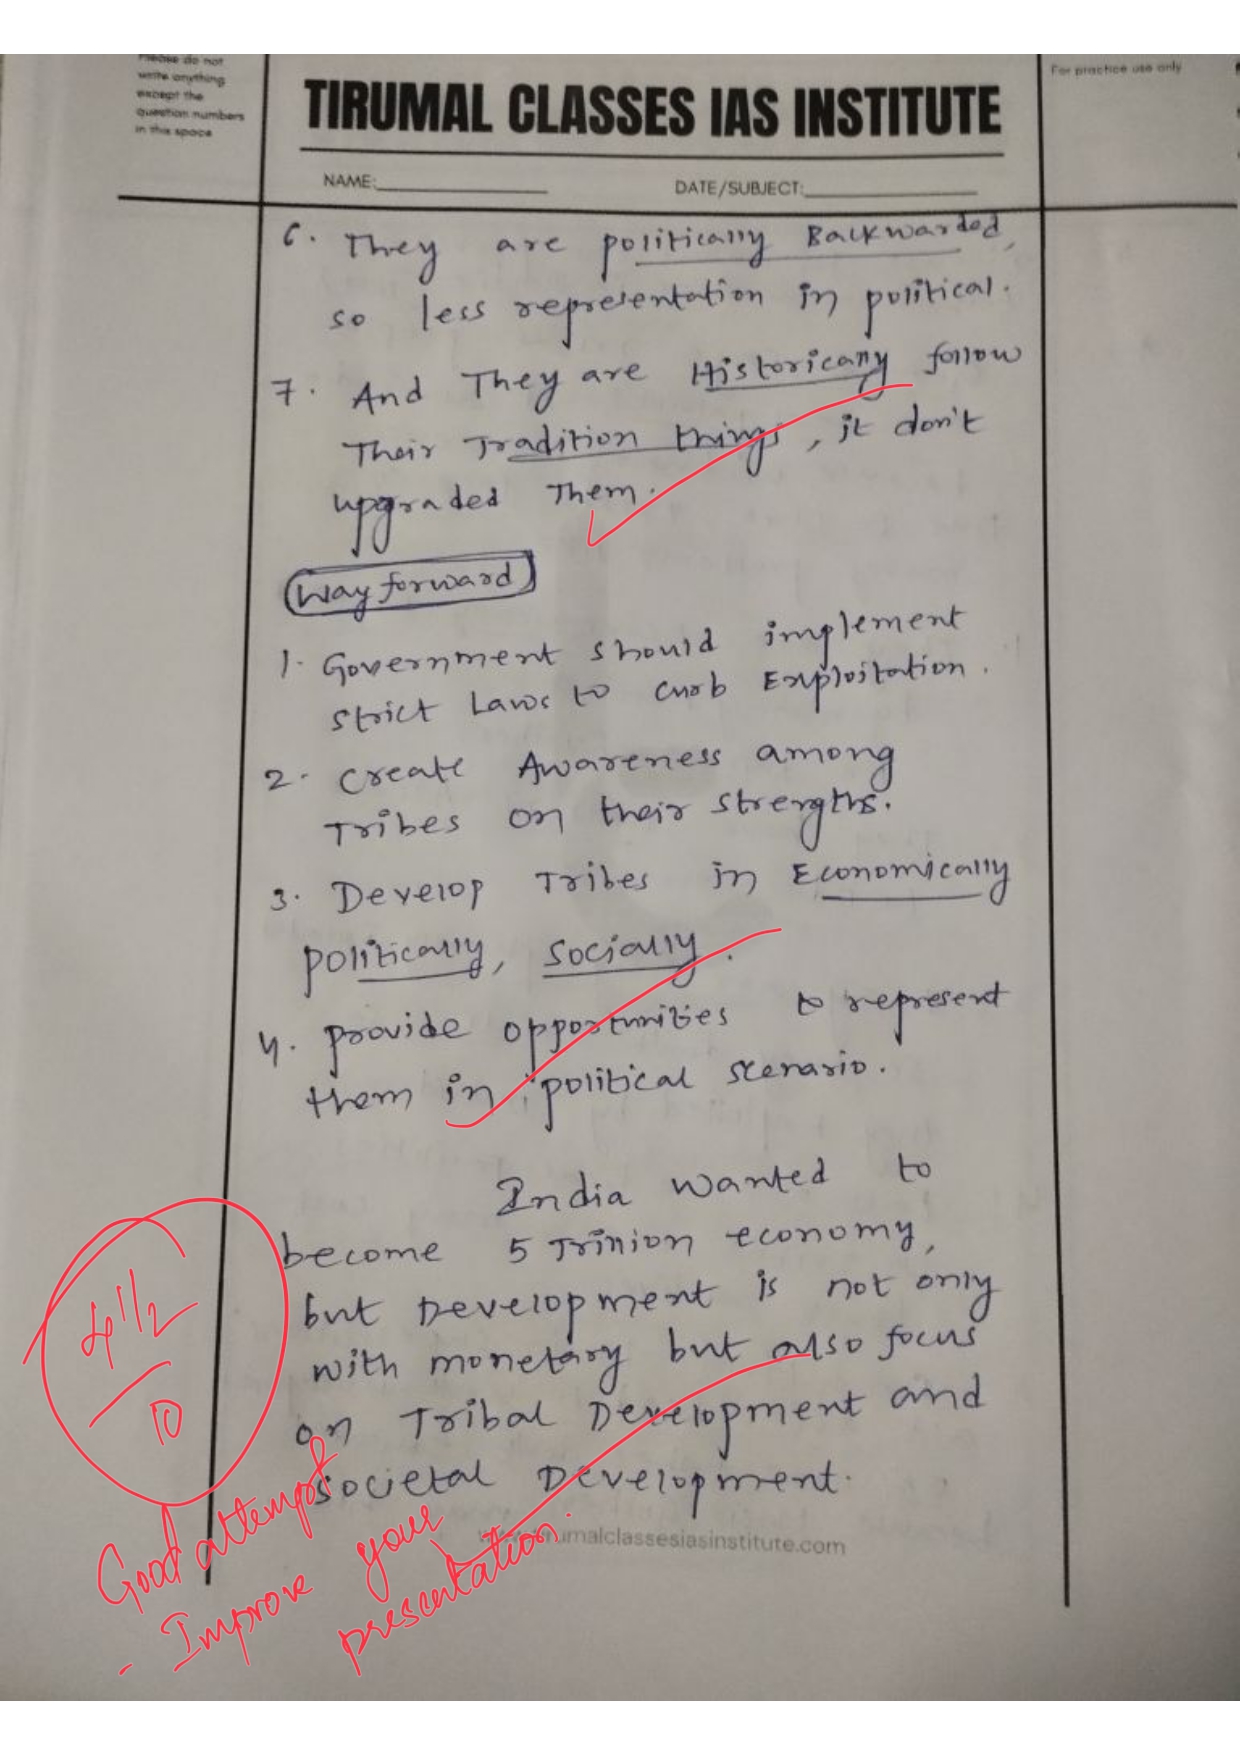 Please do not
write anything
except the
question numbers
in this space
TIRUMAL CLASSES IAS INSTITUTE
For practice use only
NAME:
DATE/SUBJECT:
6. They are politically Backwarded,
so less representation in political.
7. And They are Historically follow
Their Tradition things, it don't
upgraded Them.
Way forward
1. Government should implement
strict Laws to curb Exploitation.
2. Create Awareness among
Tribes on their strengths.
3. Develop Tribes in Economically
politically, socially.
4. provide opportunities to represent
them in political scenario.
India wanted to
become 5 Trillion economy,
but Development is not only
with monetary but also focus
on Tribal Development and
societal Development.
4 1/2
10
Good attempt
- Improve your
presentation.
www.tirumalclassesiasinstitute.com